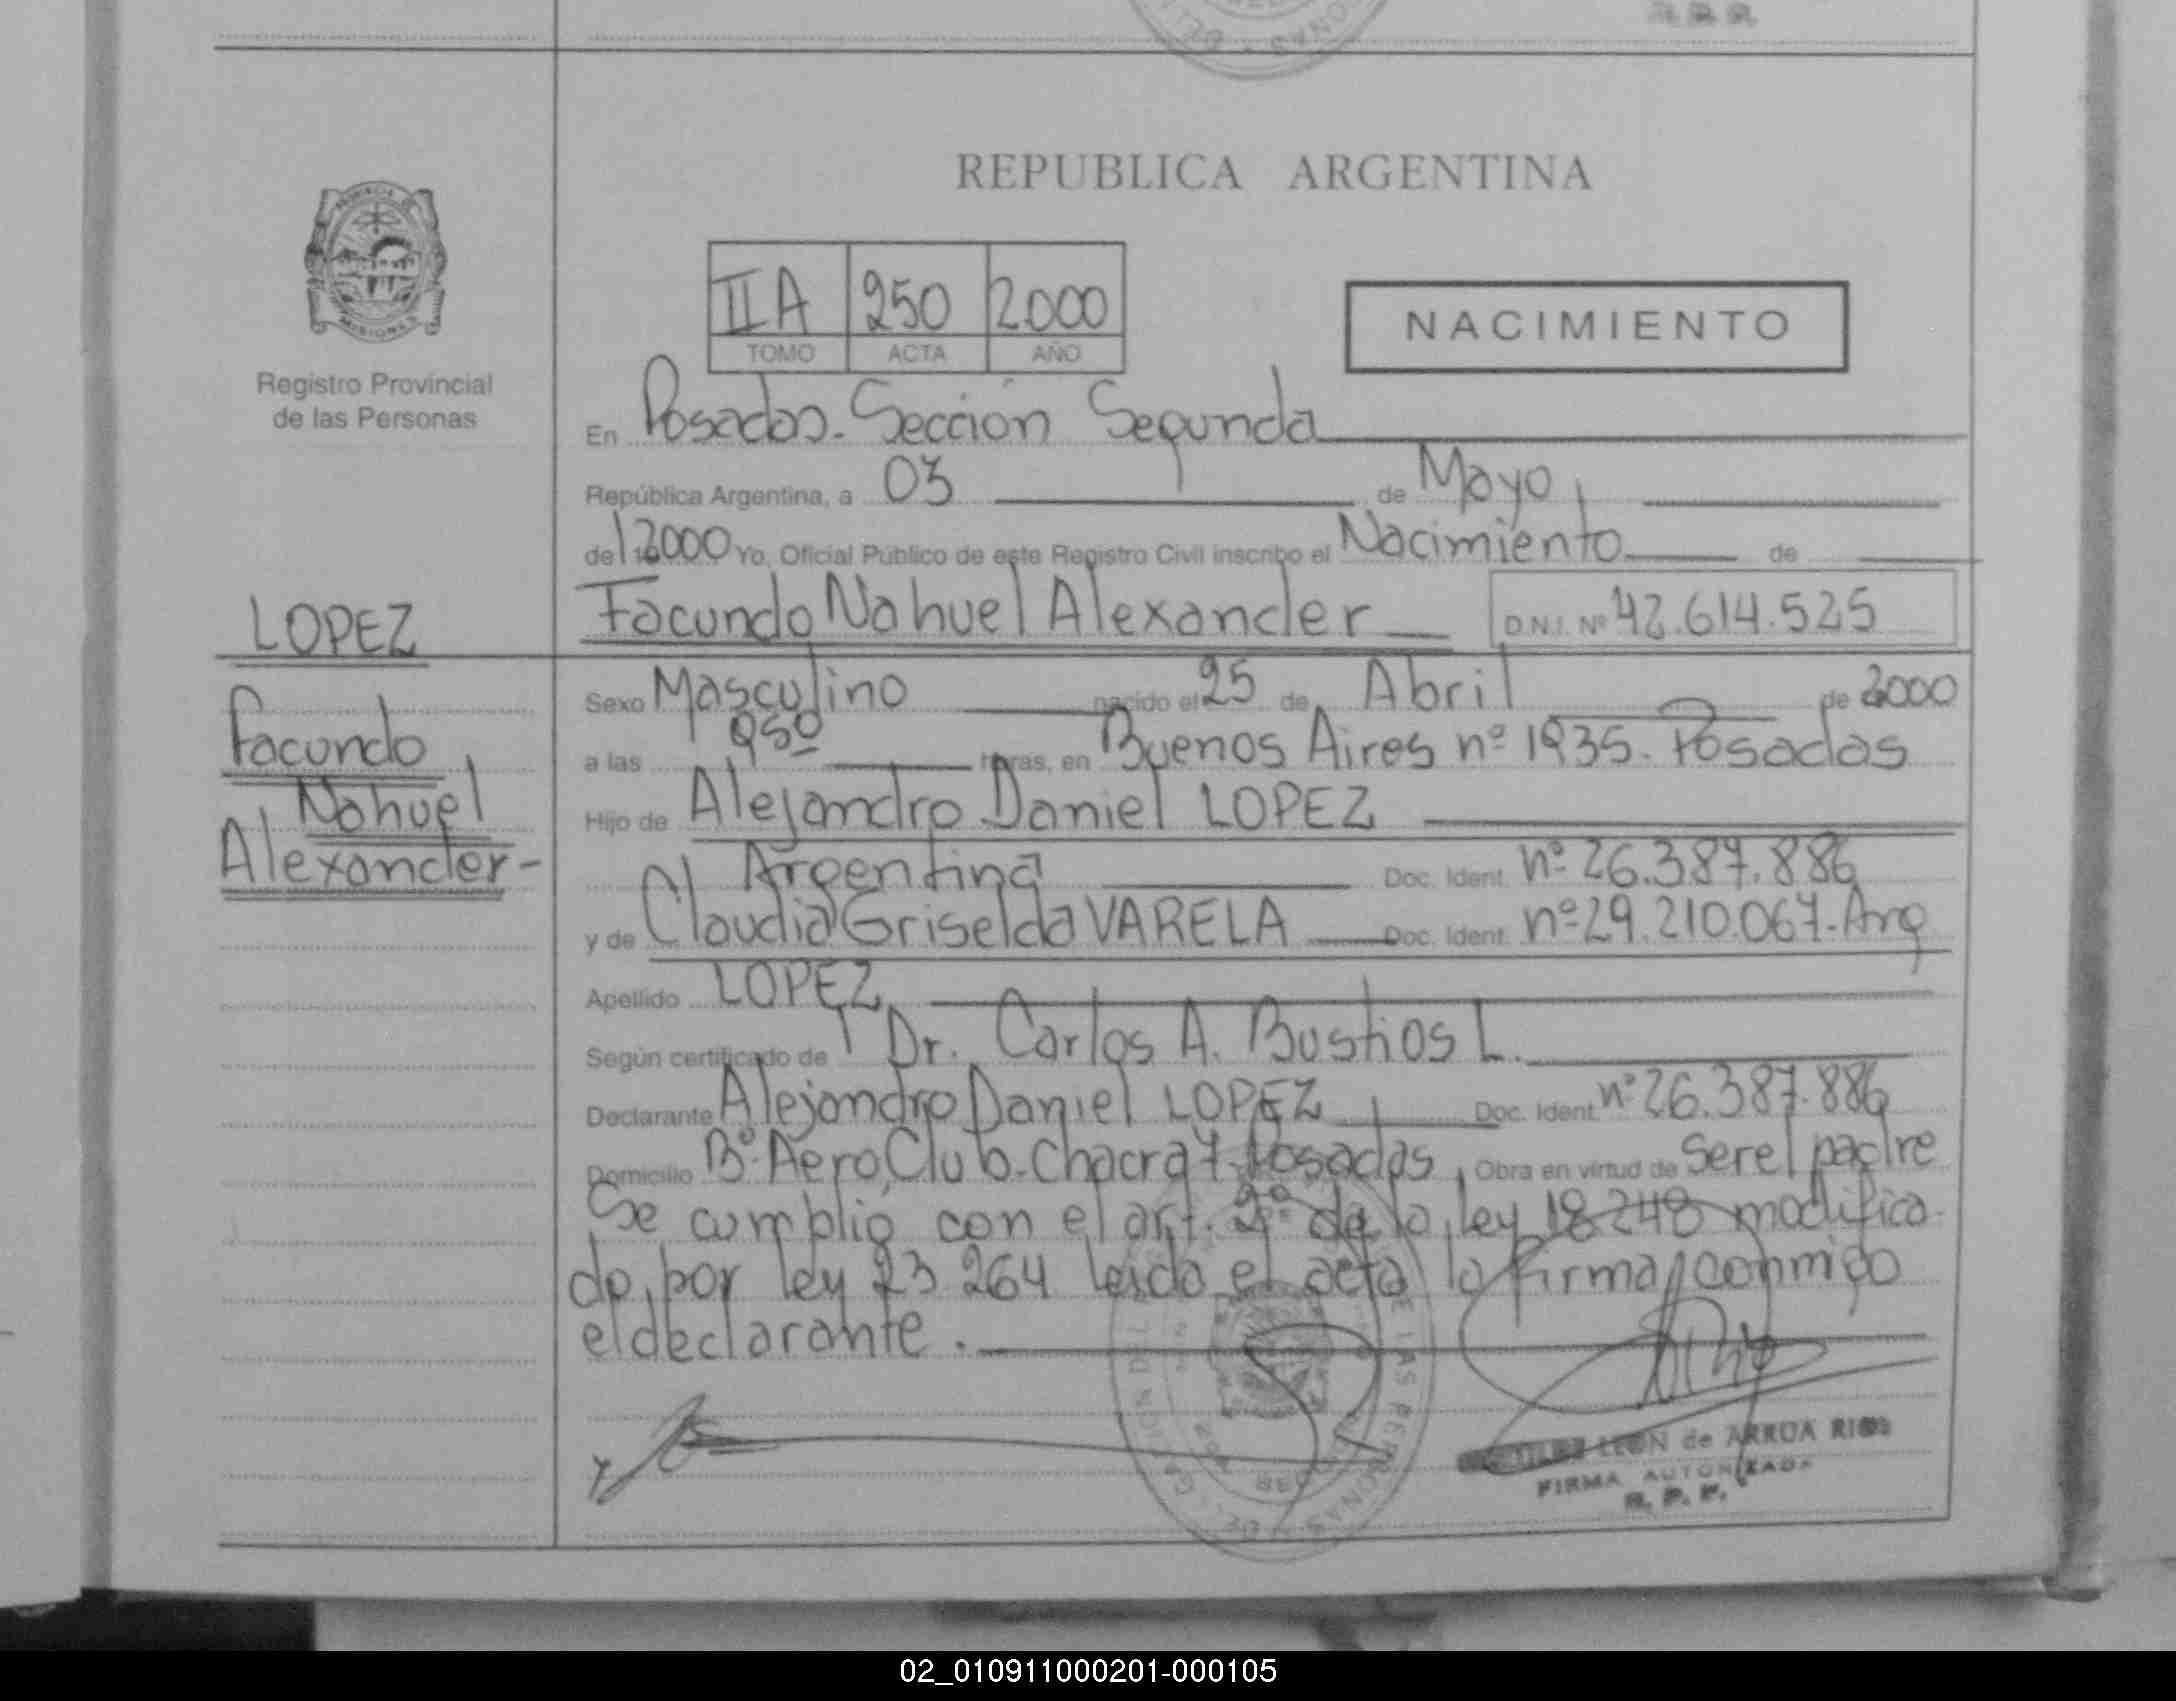 REPUBLICA ARGENTINA
II A 250 2000
TOMO ACTA AÑO
NACIMIENTO
MISIONES
Registro Provincial
de las Personas
En Posadas. Sección Segunda
República Argentina, a 03 de Mayo
del 2000 Yo, Oficial Público de este Registro Civil inscribo el Nacimiento de
LOPEZ
Facundo
Nahuel
Alexander-
Facundo Nahuel Alexander D.N.I. Nº 42.614.525
Sexo Masculino nacido el 25 de Abril de 2000
a las 950 horas, en Buenos Aires nº 1935. Posadas
Hijo de Alejandro Daniel LOPEZ
Argentina Doc. Ident. nº 26.387.886
y de Claudia Griselda VARELA Doc. Ident. nº 29.210.067-Arg
Apellido LOPEZ
Según certificado de Dr. Carlos A. Bustios L.
Declarante Alejandro Daniel LOPEZ Doc. Ident. nº 26.387.886
Domicilio Bº. Aero Club. Chacra Posadas, Obra en virtud de ser el padre
Se cumplió con el art. 2º de la ley 18248 modifica
do por ley 23 264 leida el acta la firma conmigo
el declarante.
LEON de ARRUA RIOS
FIRMA AUTORIZADA
R. P. P.
02_010911000201-000105